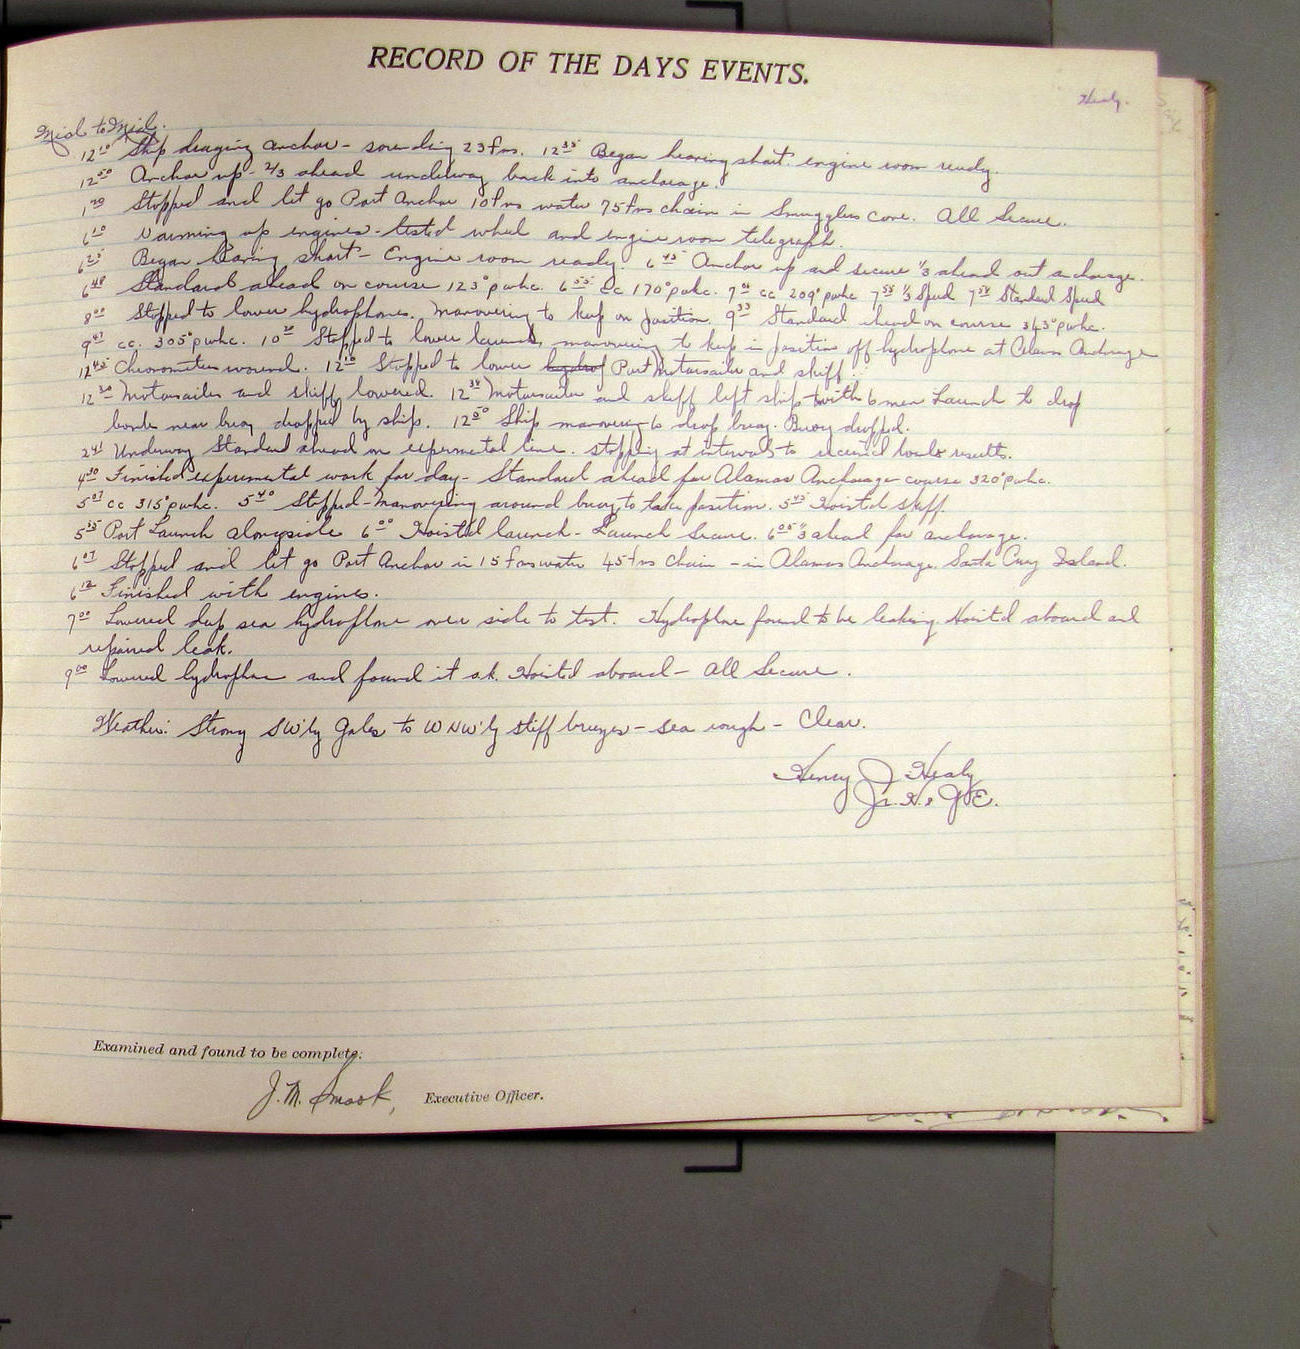 RECORD OF THE DAYS EVENTS.
Healy.
Mid to Mid.
12 10 Ship draging anchor - sounding 23 fms. 12 35 Began heaving short. engine room ready.
12 50 Anchor up - 2/3 ahead underway back into anchorage.
1 20 Stopped and let go Port Anchor 10 fms water 75 fms chain in Smugglers Cove. All Secure.
6 10 Warming up engines - tested wheel and engine room telegraph.
6 25 Began heaving short - Engine room ready. 6 45 Anchor up and secure 1/3 ahead out anchorage.
6 48 Standard ahead on course 123° pwhc. 6 55 cc 170° pwhc. 7 04 cc 209° pwhc 7 1/3 Speed 7 Standard Speed
8 00 Stopped to lower hydrophones. Manovering to keep on position. 9 33 Standard ahead on course 343° pwhc.
9 47 cc. 305° pwhc. 10 30 Stopped to lower launch, manovering to keep in position off hydrophone at Alamos Anchorage
12 45 Chronometers wound. 12 10 Stopped to lower hydrof Port Motorsailer and skiff.
12 30 Motorsailer and skiff lowered. 12 38 Motorsailer and skiff left ship with 6 men Launch to drop
bombs near buoy dropped by ship. 12 50 Ship manovering to drop buoy. Buoy dropped.
2 41 Underway Standard ahead on expermental line. stopping at intervals to record bomb results.
4 30 Finished experimental work for day - Standard ahead for Alamos Anchorage course 320° pwhc.
5 07 cc 315° pwhc. 5 40 Stopped - Manovering around buoy to take position. 5 45 Hoisted skiff.
5 55 Port Launch alongside 6 00 Hoisted launch - Launch Secure. 6 05 1/3 ahead for anchorage.
6 07 Stopped and let go Port Anchor in 15 fms water 45 fms chain - in Alamos Anchorage, Santa Cruz Island.
6 12 Finished with engines.
7 00 Lowered deep sea hydroplone over side to test. Hydroplone found to be leaking. Hoisted aboard and
repaired leak.
9 00 Lowered hydrophone and found it ok. Hoisted aboard - All Secure.
Weather: Strong SW'ly Gales to WNW'ly stiff breezes - sea rough - Clear.
Henry J Healy
Jr. H. & G E.
Examined and found to be complete:
J. M. Smook, Executive Officer.